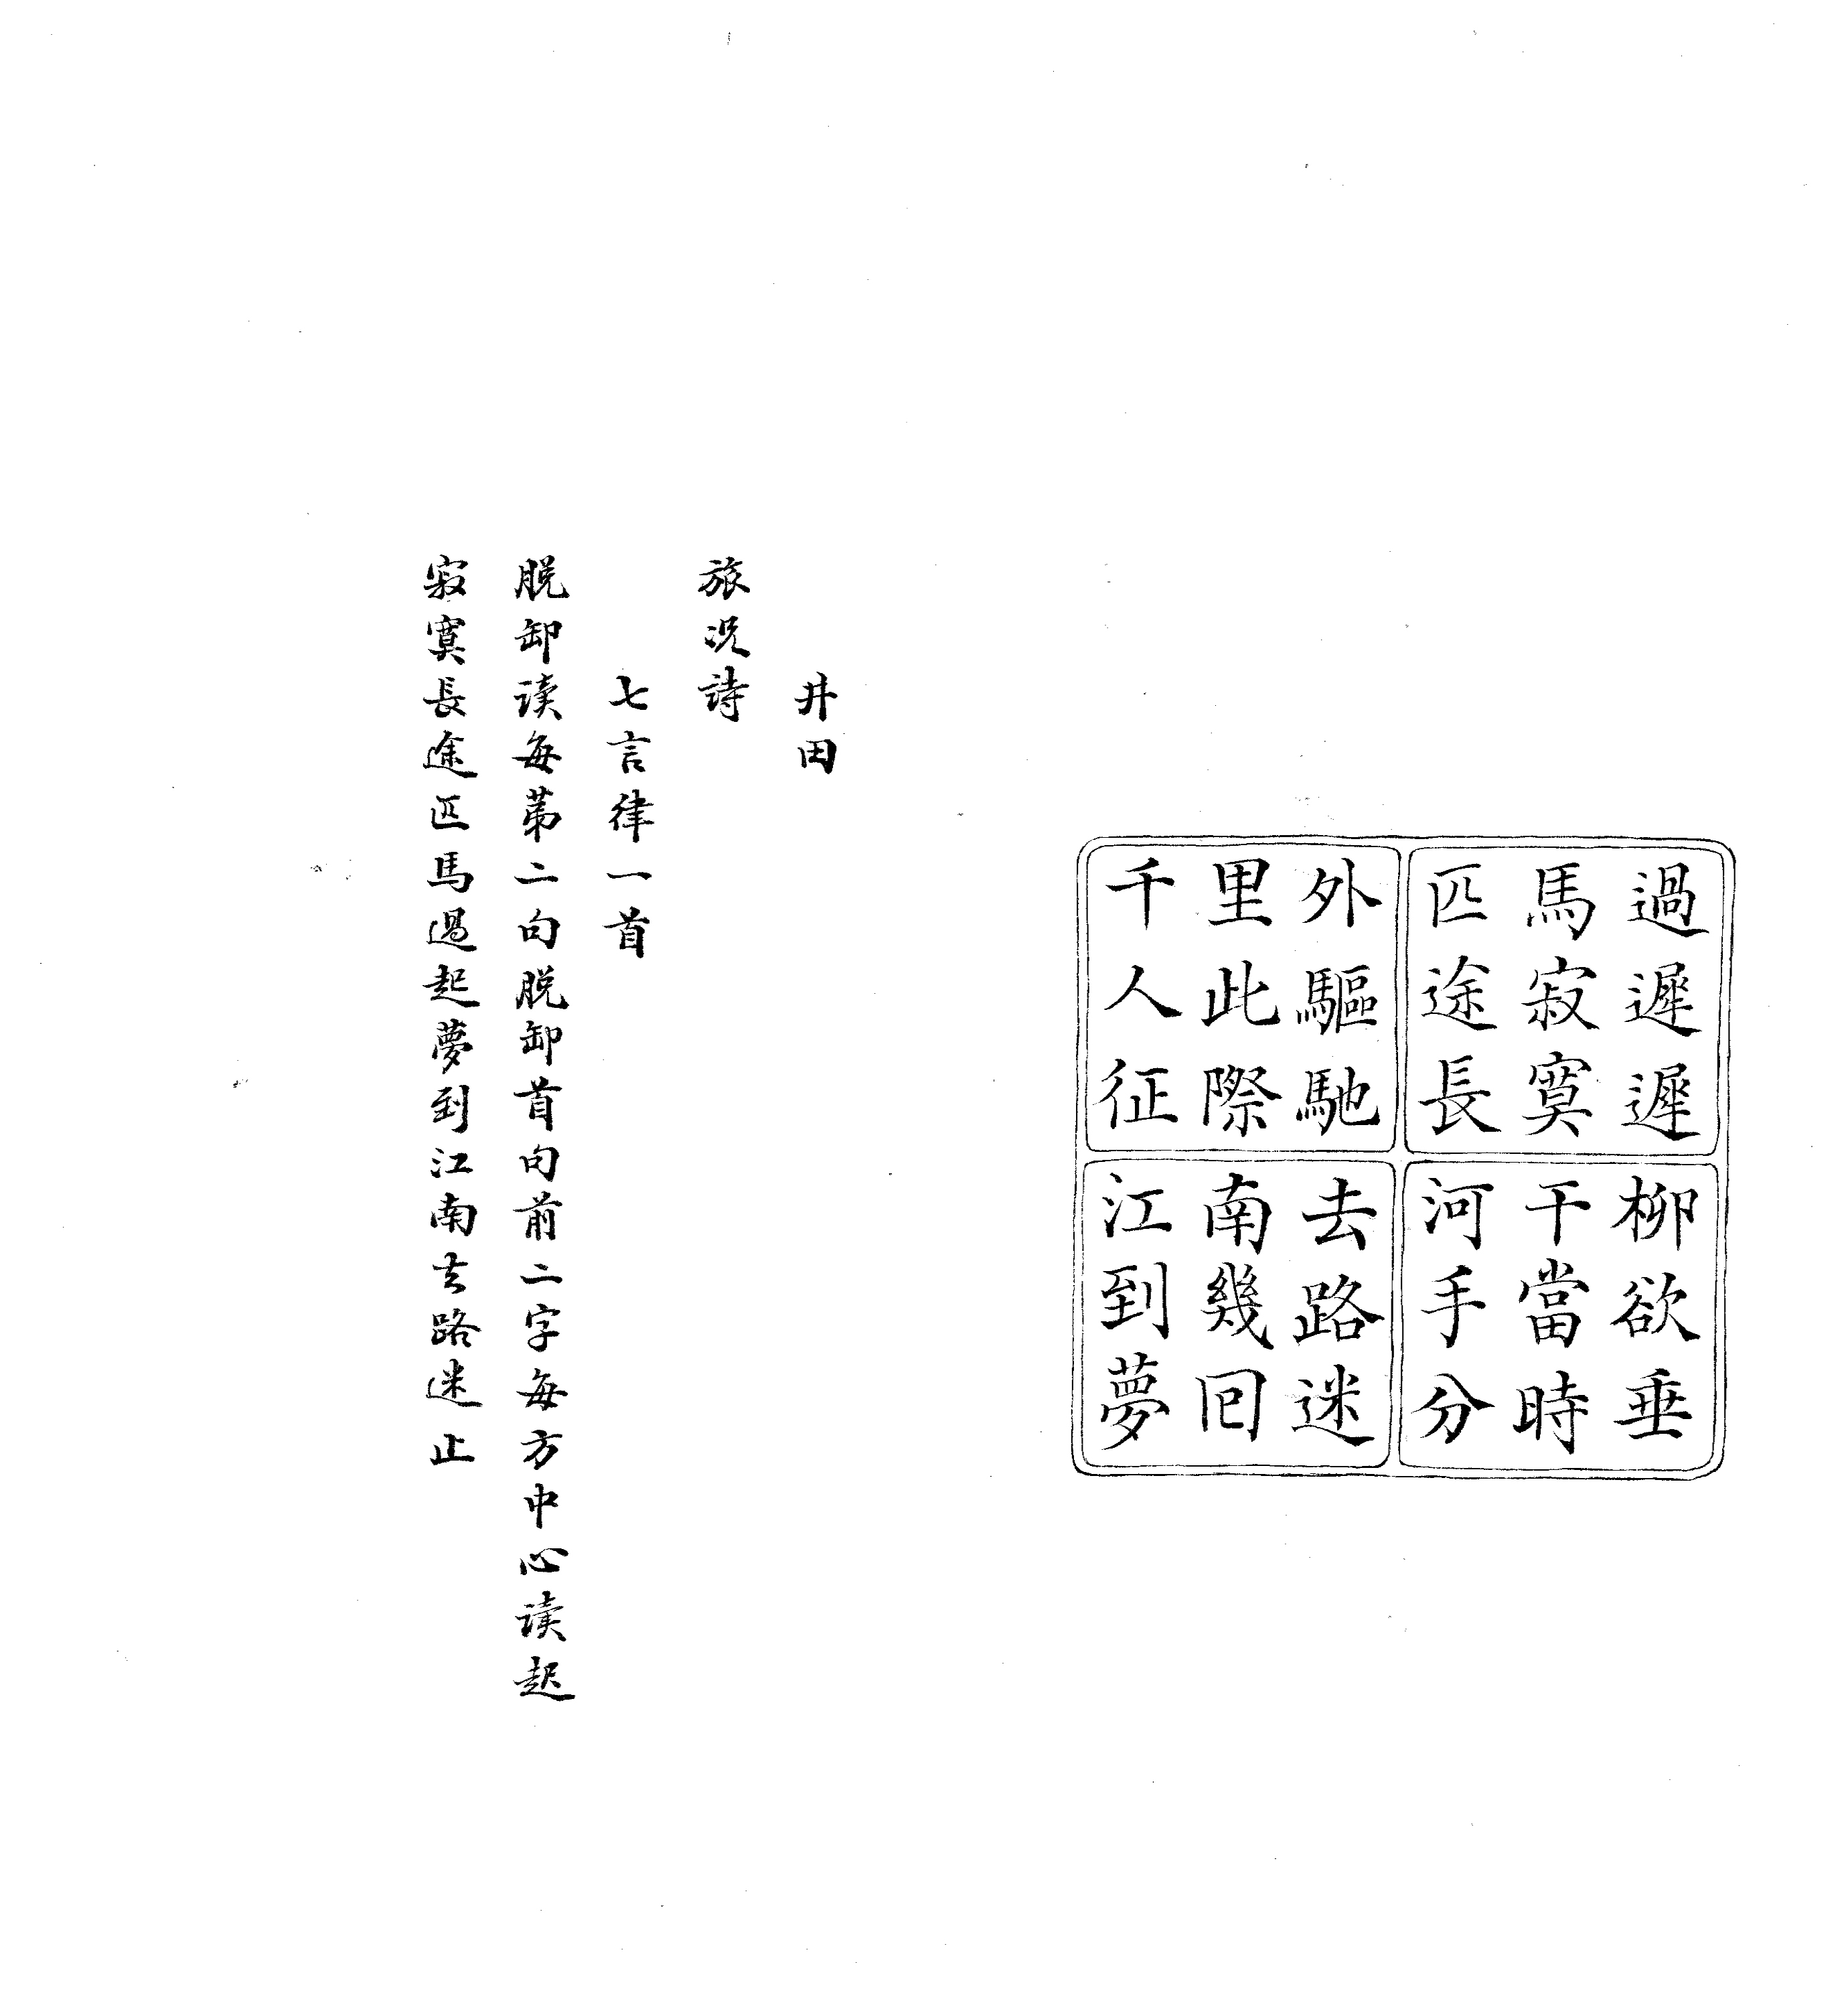 過遲遲
馬寂寞
匹途長
柳欲垂
干當時
河手分
外驅馳
里此際
千人征
去路迷
南幾回
江到夢
井田
旅况詩
七言律一首
脱卸读每苐二句脱卸首句前二字每方中心读起
寂寞長途匹馬過起夢到江南去路迷止